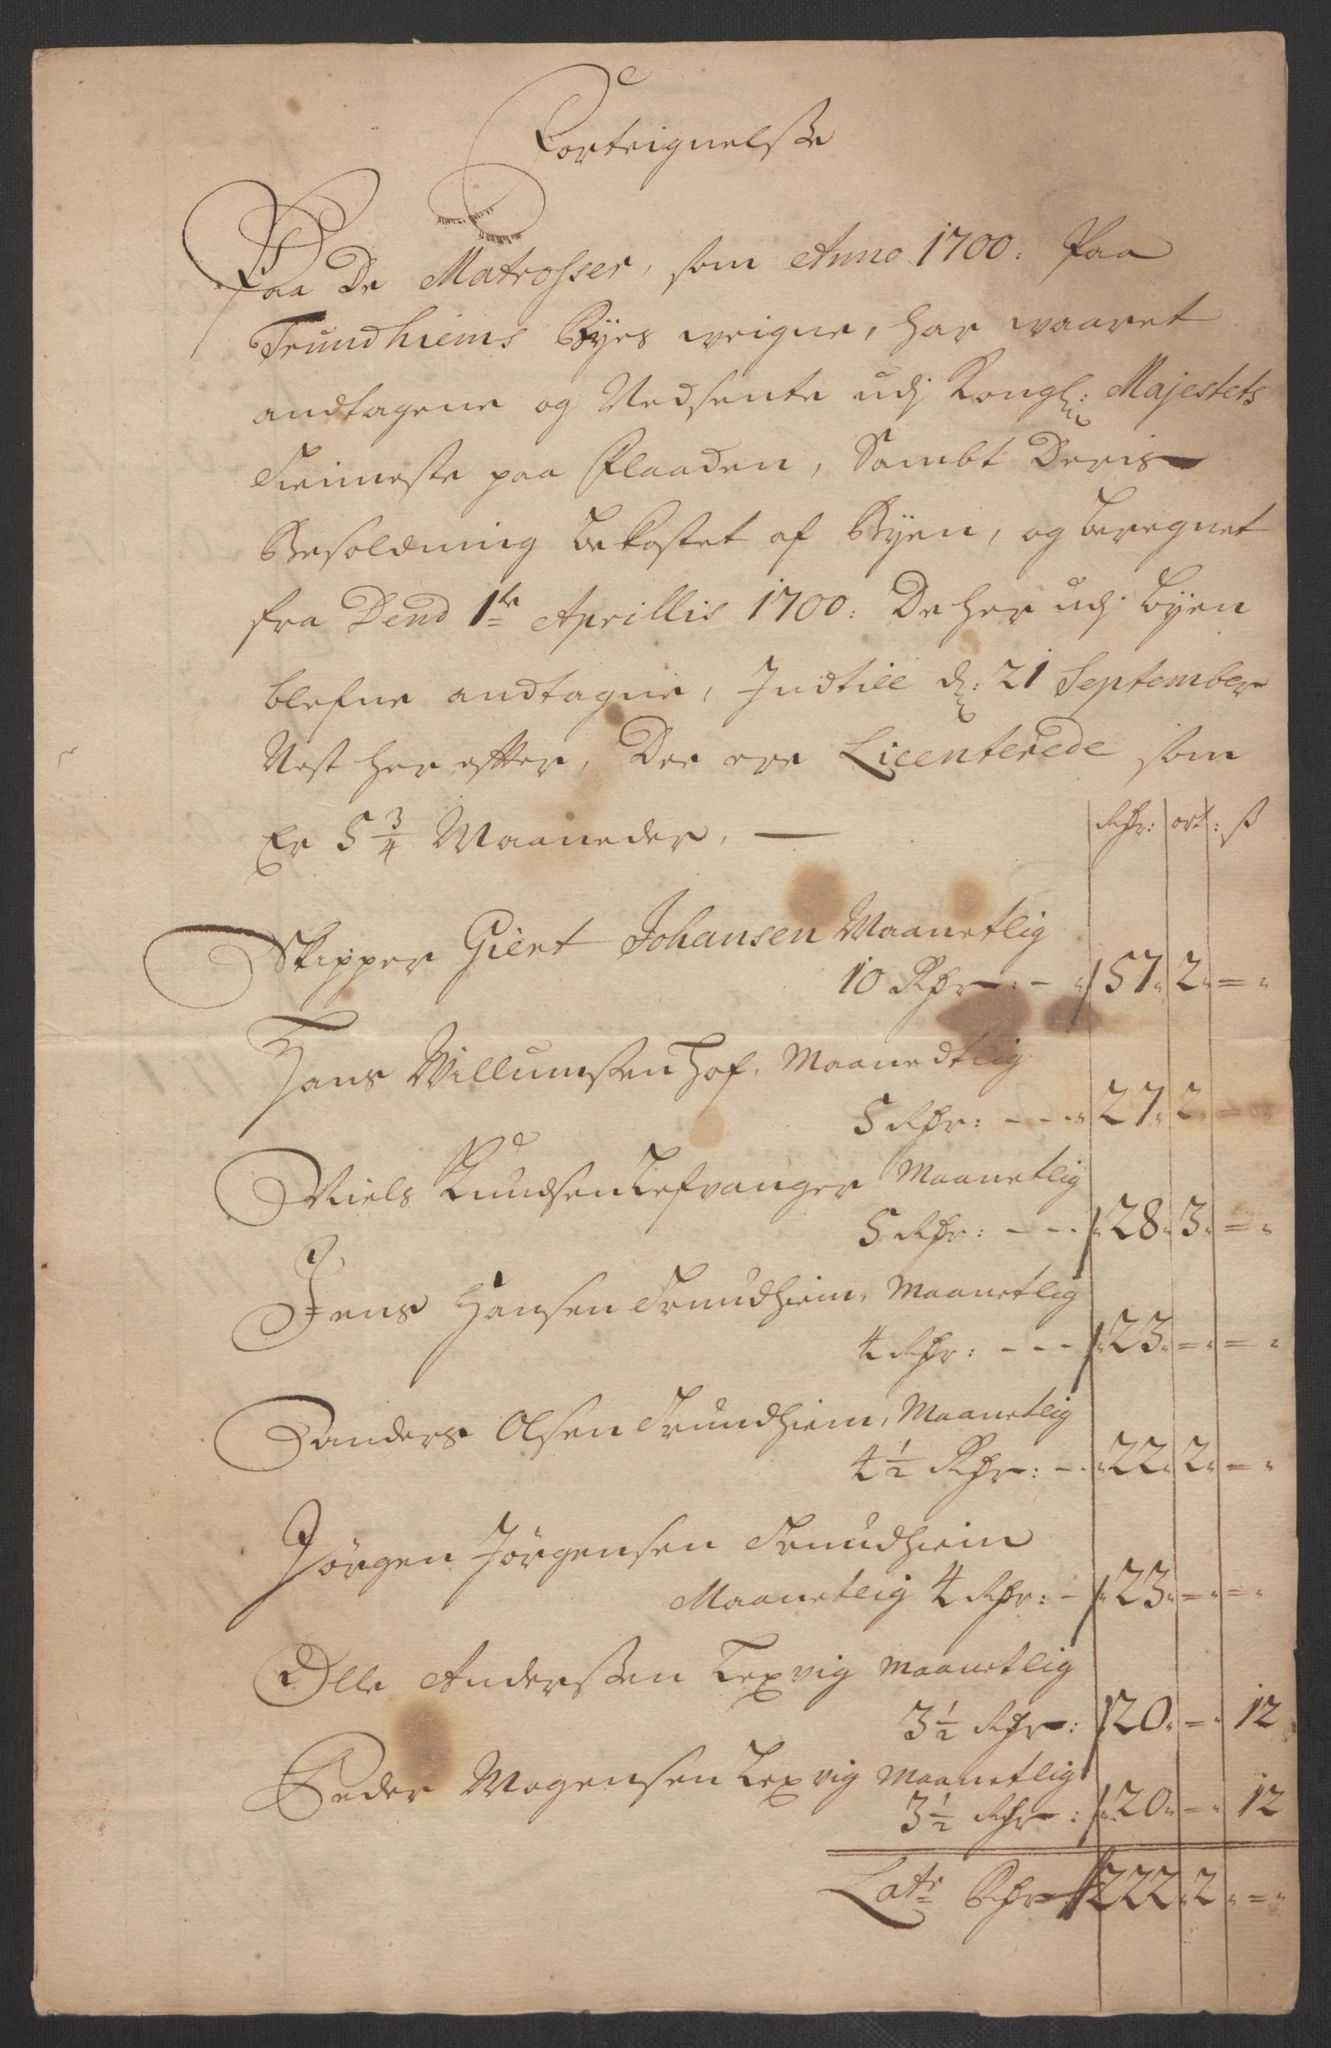 Forteignelsse
Paa De Matrosser, som Anno 1700: Paa
Trundhiems Byes weigne, har waaret
andtagene og Nedsente udj Kongl: Majestets
Tienneste paa Flaaden, Sambt Deris
Besoldning bekostet af Byen, og beregnet
fra Dend 1te Aprillis 1700: De her udj byen
blefne andtagne, Indtill d: 21 September
Nest her effter, Der ere Licenterede som
Er 5 3/4 Maaneder, —
Rdr: ort: ß
Skipper Giert Johansen Maanetlig
10 Rdr: - 57 2 =
Hans Willumssen Hof, Maanedtlig
5 Rdr: - - - 27 2 -
Niels Knudsen Lefvanger Maanetlig
5 Rdr: - - - 28 3 =
Jens Hansen Trundhiem, Maanetlig
4 Rdr: - - - 23 = =
Sanders Olsen Trundhiem, Maanetlig
4 1/2 Rdr: - 22 2 =
Jörgen Jörgensen Trundhiem
Maanetlig 4 Rdr: - 23 = =
Olle Anderssen Lexvig maanetlig
3 1/2 Rdr: 20 = 12
Peder Mogensen Lexvig maanetlig
3 1/2 Rdr: 20 = 12
Latr Rdr 222 2 =